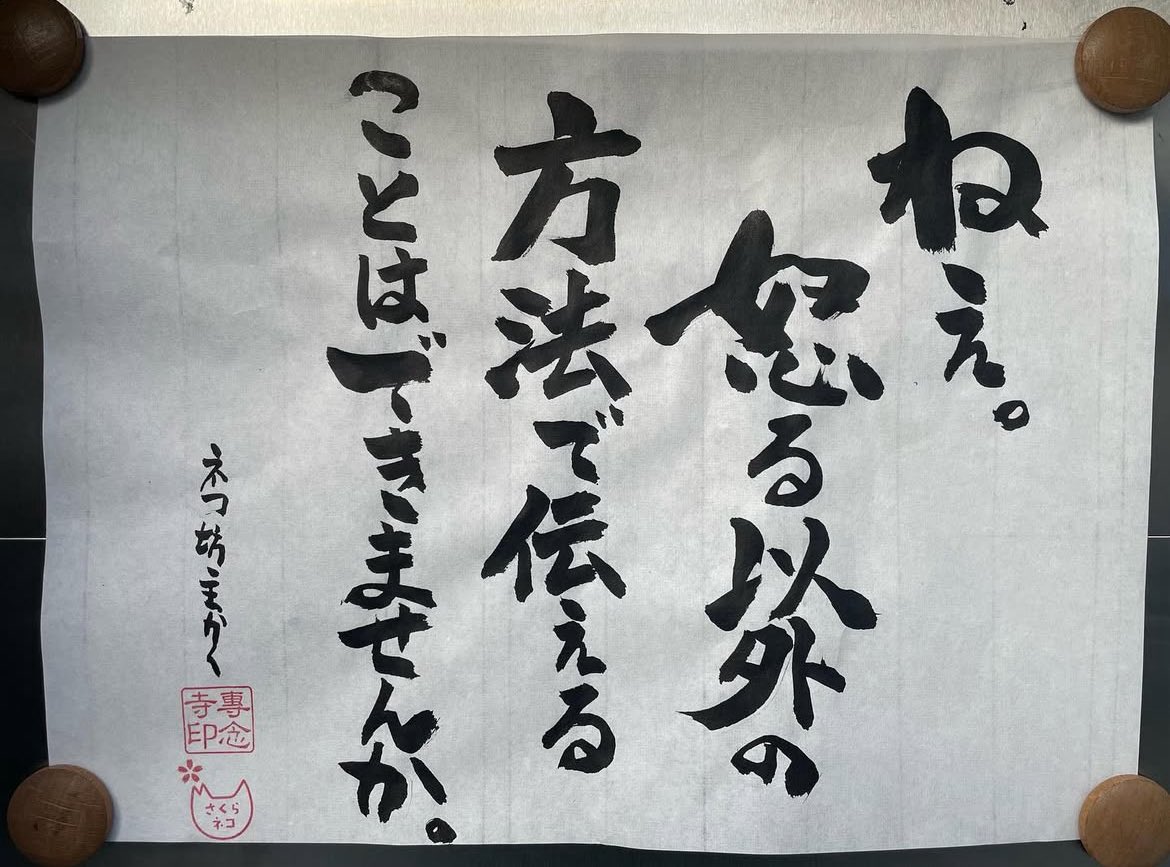 ねえ。
怒る以外の
方法で伝える
ことはできませんか。
ネコ坊主かく
專念
寺印
さくら
ネコ